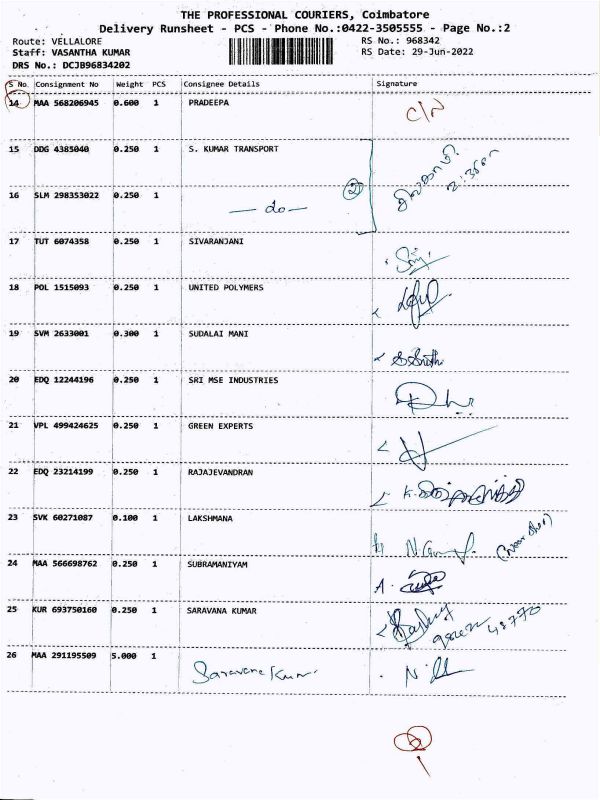 THE PROFESSIONAL COURIERS, Coimbatore
Delivery Runsheet - PCS - Phone No.:0422-3505555 - Page No.:2
Route: VELLALORE
Staff: VASANTHA KUMAR
DRS No.: DCJB96834202
RS No.: 968342
RS Date: 29-Jun-2022
S No. Consignment No Weight PCS Consignee Details Signature
14 MAA 568206945 0.600 1 PRADEEPA C/N
15 DDG 4385040 0.250 1 S. KUMAR TRANSPORT
16 SLM 298353022 0.250 1 — do — 2
17 TUT 6074358 0.250 1 SIVARANJANI
18 POL 1515093 0.250 1 UNITED POLYMERS
19 SVM 2633001 0.300 1 SUDALAI MANI
20 EDQ 12244196 0.250 1 SRI MSE INDUSTRIES
21 VPL 499424625 0.250 1 GREEN EXPERTS
22 EDQ 23214199 0.250 1 RAJAJEVANDRAN
23 SVK 60271087 0.100 1 LAKSHMANA
24 MAA 566698762 0.250 1 SUBRAMANIYAM
25 KUR 693750160 0.250 1 SARAVANA KUMAR
26 MAA 291195509 5.000 1 Saravana Kumar